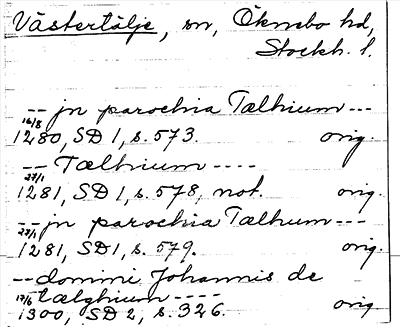 Västertälje, sn, Öknebo hd,
Stockh. l.
-- jn parochia Tælhium ---
16/8 1280, SD 1, s. 573. orig.
-- Tælhium ----
27/1 1281, SD 1, s. 578, not. orig.
-- jn parochia Tælhum ---
27/1 1281, SD 1, s. 579. orig.
-- domini Johannis de
tælghium ----
17/6 1300, SD 2, s. 326. orig